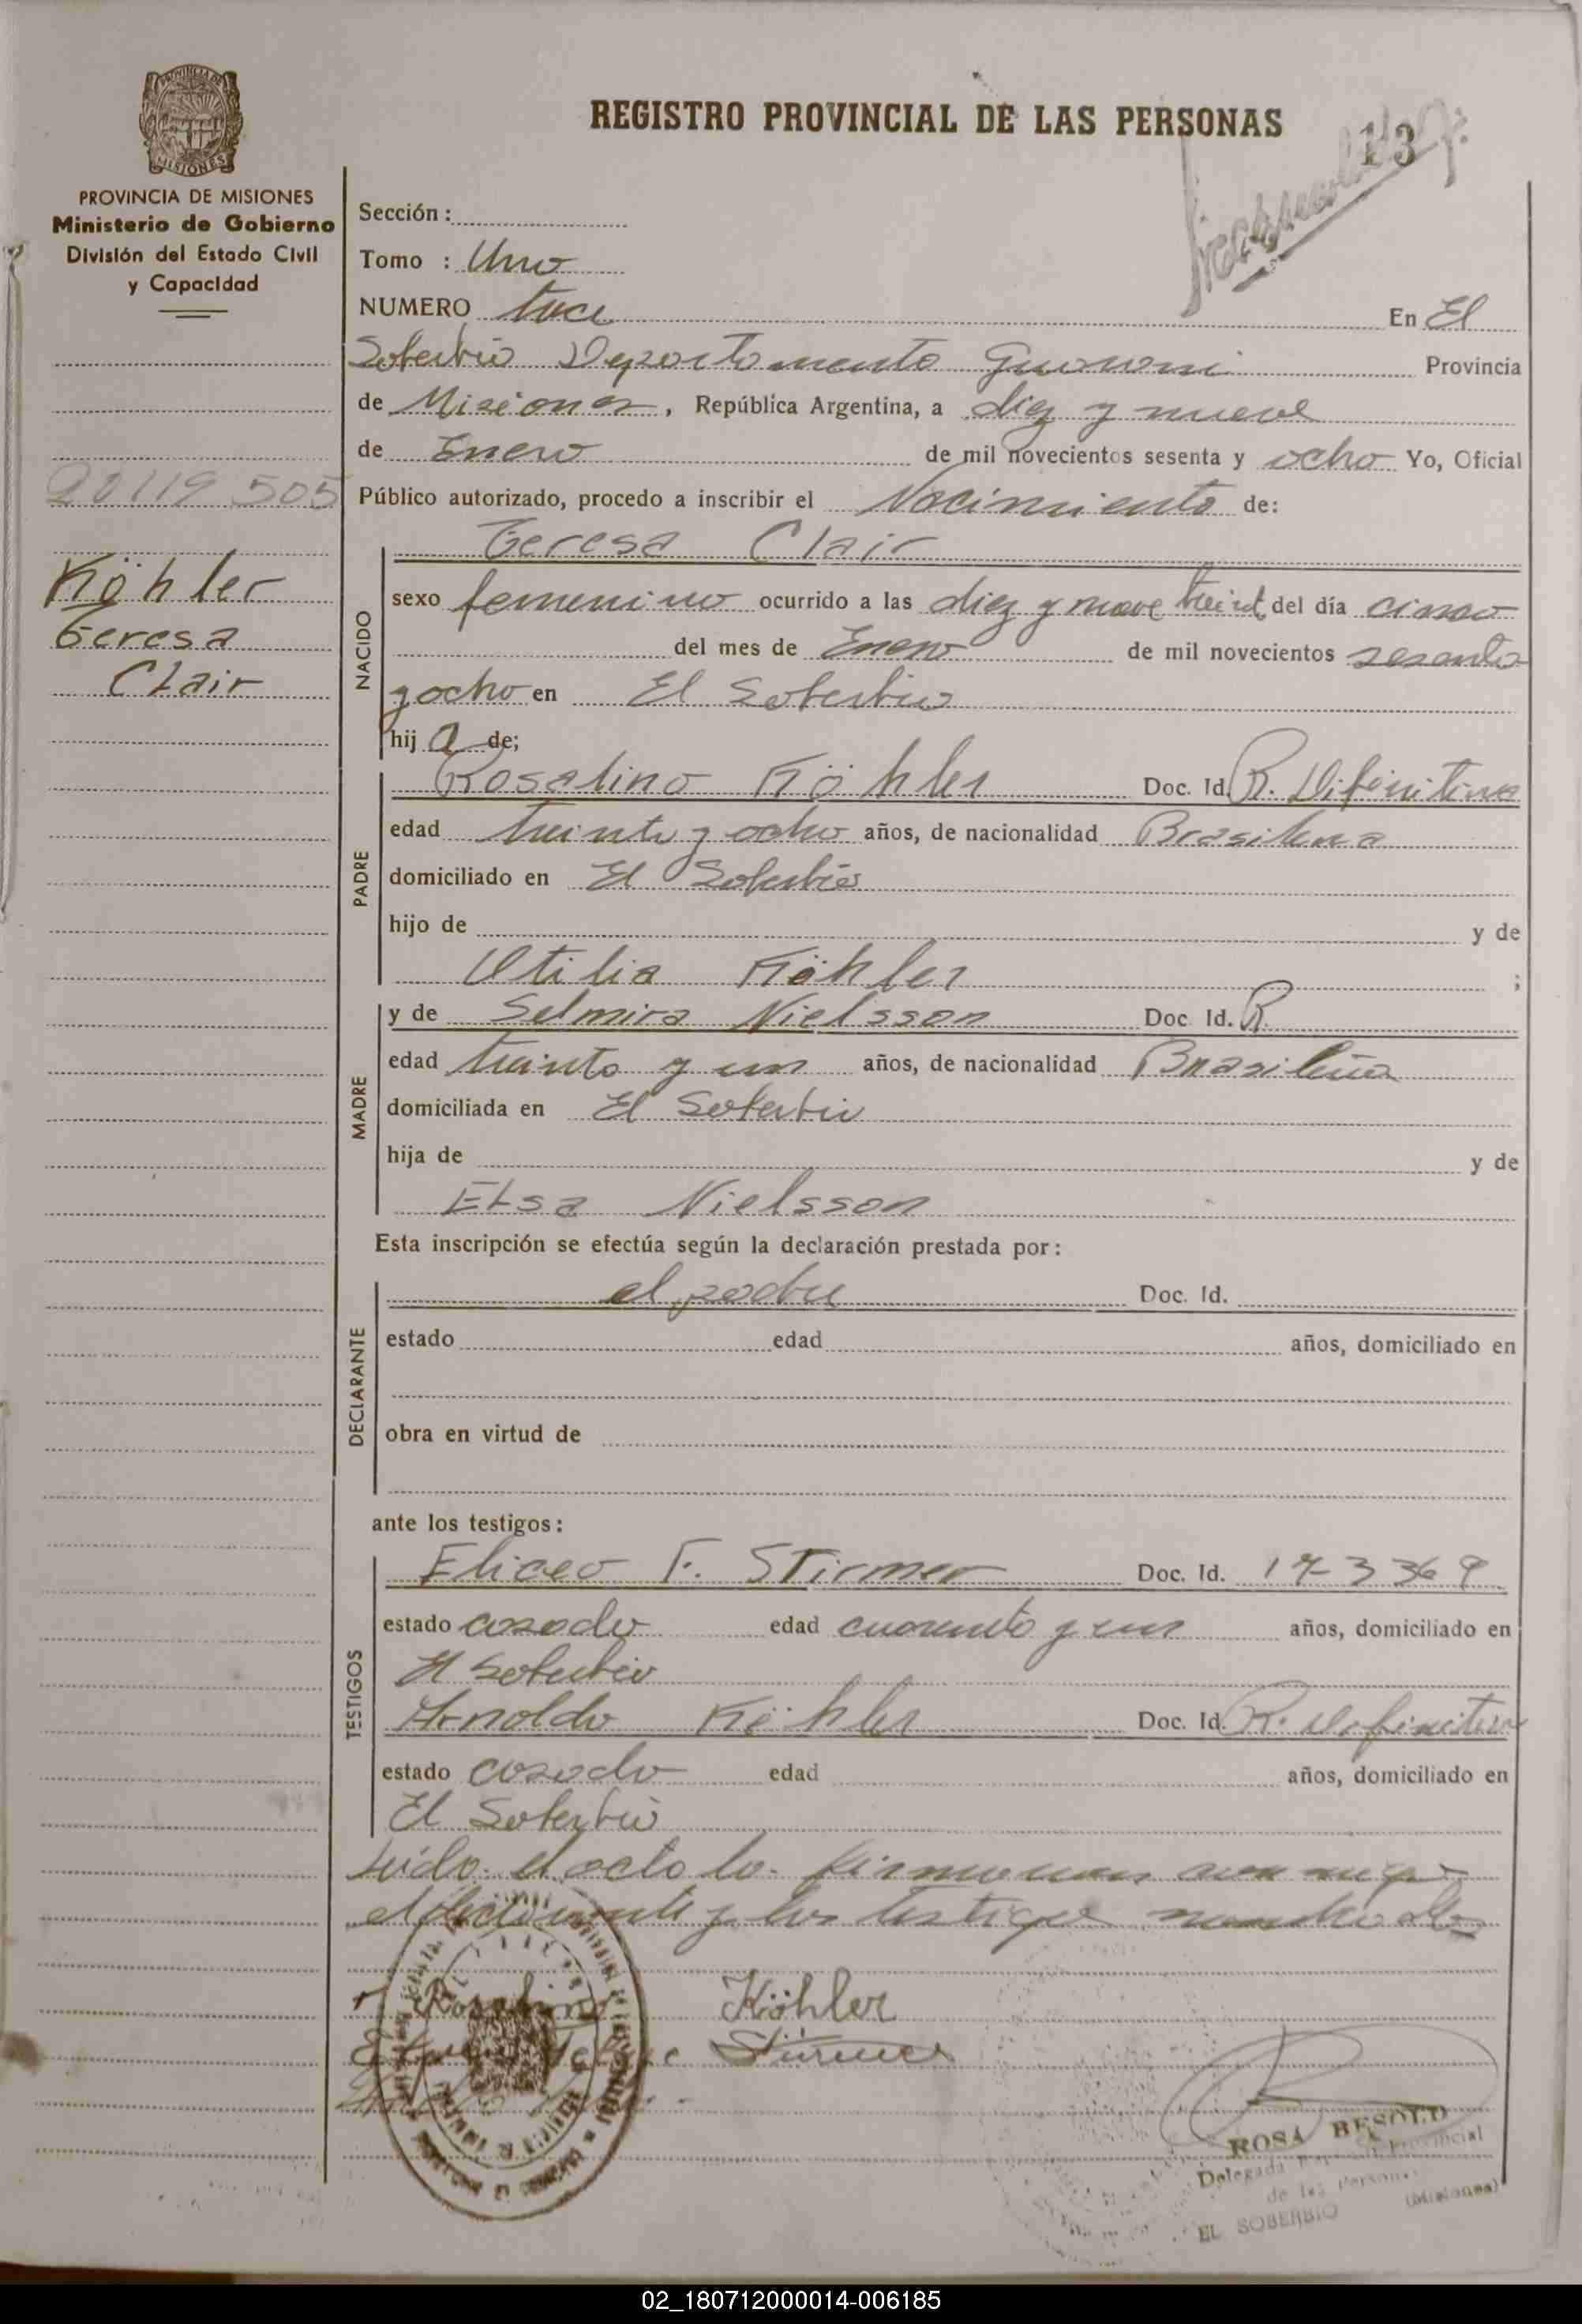 REGISTRO PROVINCIAL DE LAS PERSONAS
13
PROVINCIA DE MISIONES
Ministerio de Gobierno
División del Estado Civil
y Capacidad
Sección :
Tomo : Uno
NUMERO trece En El
Soberbio Departamento Guarani Provincia
de Misiones, República Argentina, a diez y nueve
de Enero de mil novecientos sesenta y ocho Yo, Oficial
20119 505
Público autorizado, procedo a inscribir el Nacimiento de:
Köhler
Teresa
Clair
NACIDO
Teresa Clair
sexo femenino ocurrido a las diez y nueve treint del día cinco
del mes de Enero de mil novecientos sesenta
y ocho en El Soberbio
hij a de;
PADRE
Rosalino Köhler Doc. Id. R. Difinitiva
edad treinta y ocho años, de nacionalidad Brasilena
domiciliado en El Soberbio
hijo de y de
Utilia Köhler ;
MADRE
y de Selmira Nielsson Doc Id. R.
edad treinta y un años, de nacionalidad Brasileña
domiciliada en El Soberbio
hija de y de
Elsa Nielsson
Esta inscripción se efectúa según la declaración prestada por:
DECLARANTE
el padre Doc. Id.
estado edad años, domiciliado en
obra en virtud de
ante los testigos:
TESTIGOS
Eliceo F. Stirmer Doc. Id.
estado casado edad cuarenta y un años, domiciliado en
El Soberbio
Arnoldo Köhler Doc. Id. R. Definitiva
estado casado edad años, domiciliado en
El Soberbio
Leido el acta la
y los testigos
Rosalino Köhler
Stürmer
ROSA BESOLD
Delegada Provincial
de las Personas
(Misiones)
EL SOBERBIO
02_180712000014-006185